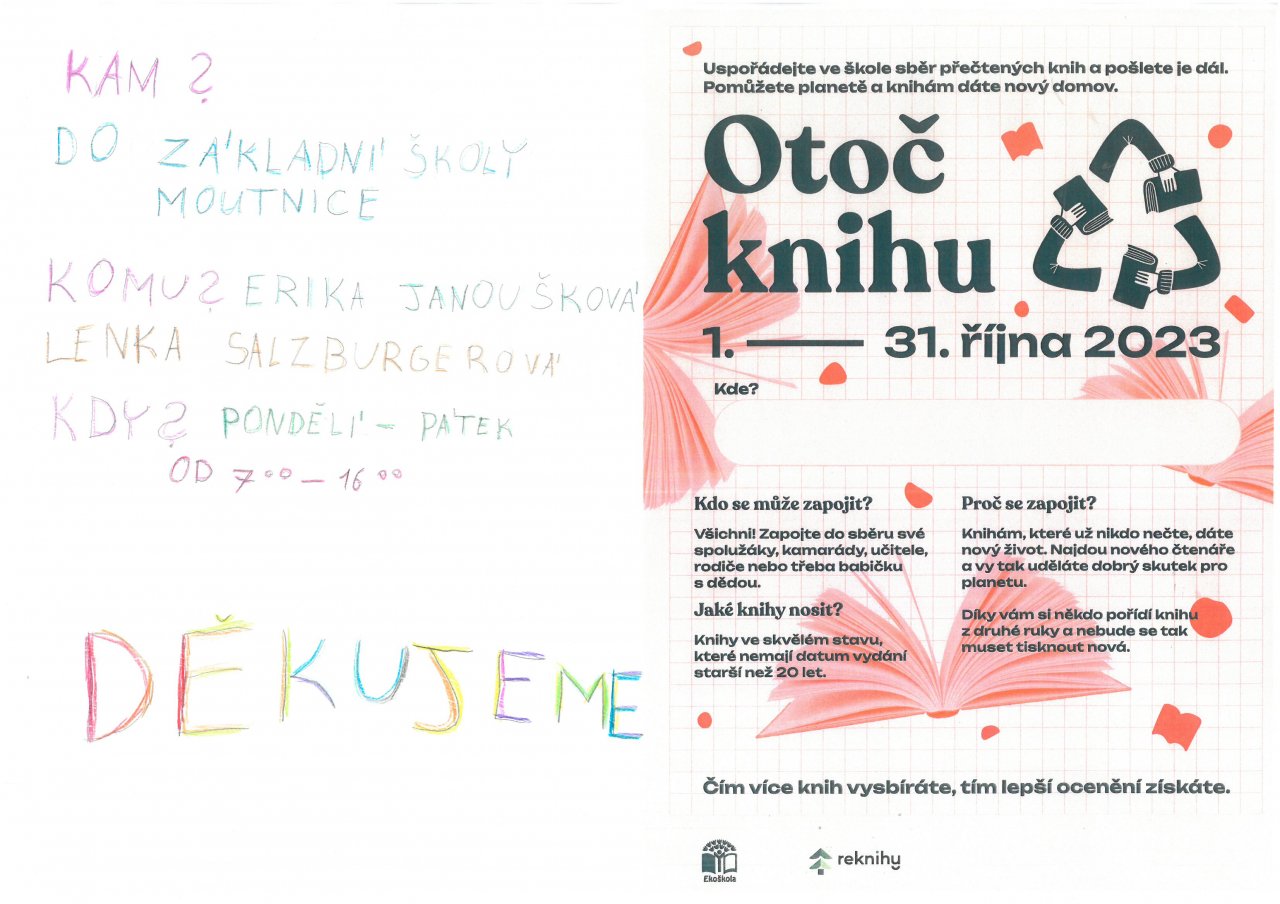 KAM?
DO ZÁKLADNÍ ŠKOLY
MOUTNICE
KOMU? ERIKA JANOUŠKOVÁ
LENKA SALZBURGEROVÁ
KDY? PONDĚLÍ - PÁTEK
OD 7⁰⁰ - 16⁰⁰
DĚKUJEME
Uspořádejte ve škole sběr přečtených knih a pošlete je dál.
Pomůžete planetě a knihám dáte nový domov.
Otoč
knihu
1. — 31. října 2023
Kde?
Kdo se může zapojit?
Všichni! Zapojte do sběru své
spolužáky, kamarády, učitele,
rodiče nebo třeba babičku
s dědou.
Jaké knihy nosit?
Knihy ve skvělém stavu,
které nemají datum vydání
starší než 20 let.
Proč se zapojit?
Knihám, které už nikdo nečte, dáte
nový život. Najdou nového čtenáře
a vy tak uděláte dobrý skutek pro
planetu.
Díky vám si někdo pořídí knihu
z druhé ruky a nebude se tak
muset tisknout nová.
Čím více knih vysbíráte, tím lepší ocenění získáte.
Ekoškola
reknihy